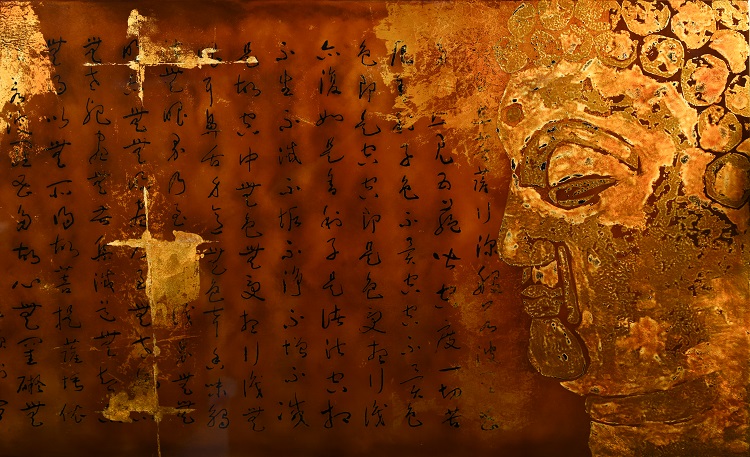 菩薩行深般若波
見五蘊皆空度一切苦
舍利子色不異空空不異色
色即是空空即是色受想行識
亦復如是舍利子是諸法空相
不生不滅不垢不淨不增不減
是故空中無色無受想行識無
耳鼻舌身意無色聲香味觸
無眼界乃至 識界無無
明 無無明 至無老
無老死盡無苦集滅道無智
無得以無所得故菩提薩埵依
羅蜜多故心無罣礙無